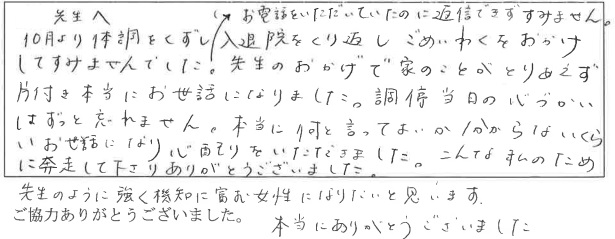 先生へ
お電話をいただいていたのに返信できずすみません。
10月より体調をくずし入退院をくり返しごめいわくをおかけ
してすみませんでした。先生のおかげで家のことがとりあえず
片付き本当にお世話になりました。調停当日の心づかい
はずっと忘れません。本当に何と言ってよいか分からないくら
いお世話になり心配りをいただきました。こんな私のため
に奔走して下さりありがとうございました。
先生のように強く機知に富む女性になりたいと思います。
ご協力ありがとうございました。
本当にありがとうございました